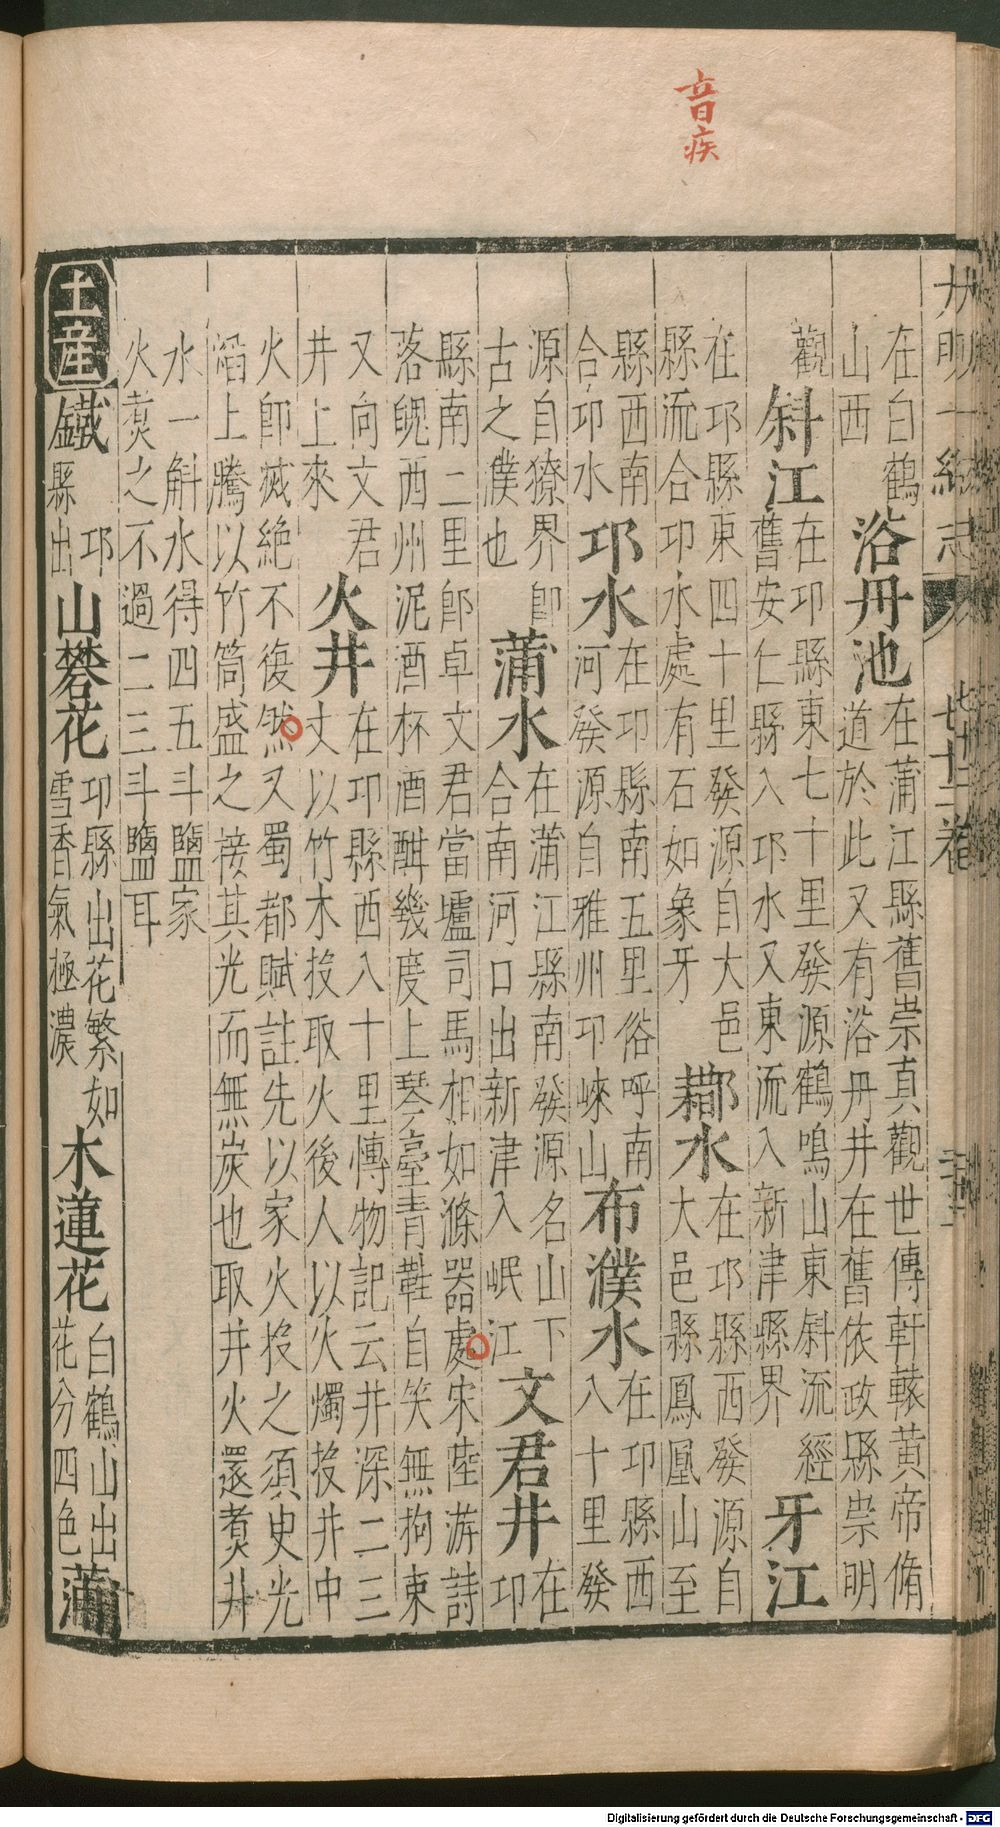 音疾
大明一統志 七十二卷
在白鶴山西 浴丹池 在蒲江縣舊崇真觀世傳軒轅黄帝脩道於此又有浴丹井在舊依政縣崇明
觀 斜江 在邛縣東七十里發源鶴鳴山東斜流經舊安仁縣入邛水又東流入新津縣界 牙江
在邛縣東四十里發源自大邑縣流合邛水處有石如象牙 水 在邛縣西發源自大邑縣鳳凰山至
縣西南合邛水 邛水 在邛縣南五里俗呼南河發源自雅州邛崍山 布濮水 在邛縣西八十里發
源自獠界即古之濮也 蒲水 在蒲江縣南發源名山下合南河口出新津入岷江 文君井 在邛
縣南二里郎卓文君當壚司馬相如滌器處宋陸游詩落魄西州泥酒杯酒酣幾度上琴臺青鞋自笑無拘束
又向文君井上來 火井 在邛縣西八十里博物記云井深二三丈以竹木投取火後人以火燭投井中
火即滅絕不復然又蜀都賦註先以家火投之須史光焰上騰以竹筒盛之接其光而無炭也取井火還煑井
水一斛水得四五斗鹽家火煑之不過二三斗鹽耳
土産 鐵 邛縣出 山礬花 邛縣出花繁如雪香氣極濃 木蓮花 白鶴山出花分四色 蒲
Digitalisierung gefördert durch die Deutsche Forschungsgemeinschaft - DFG